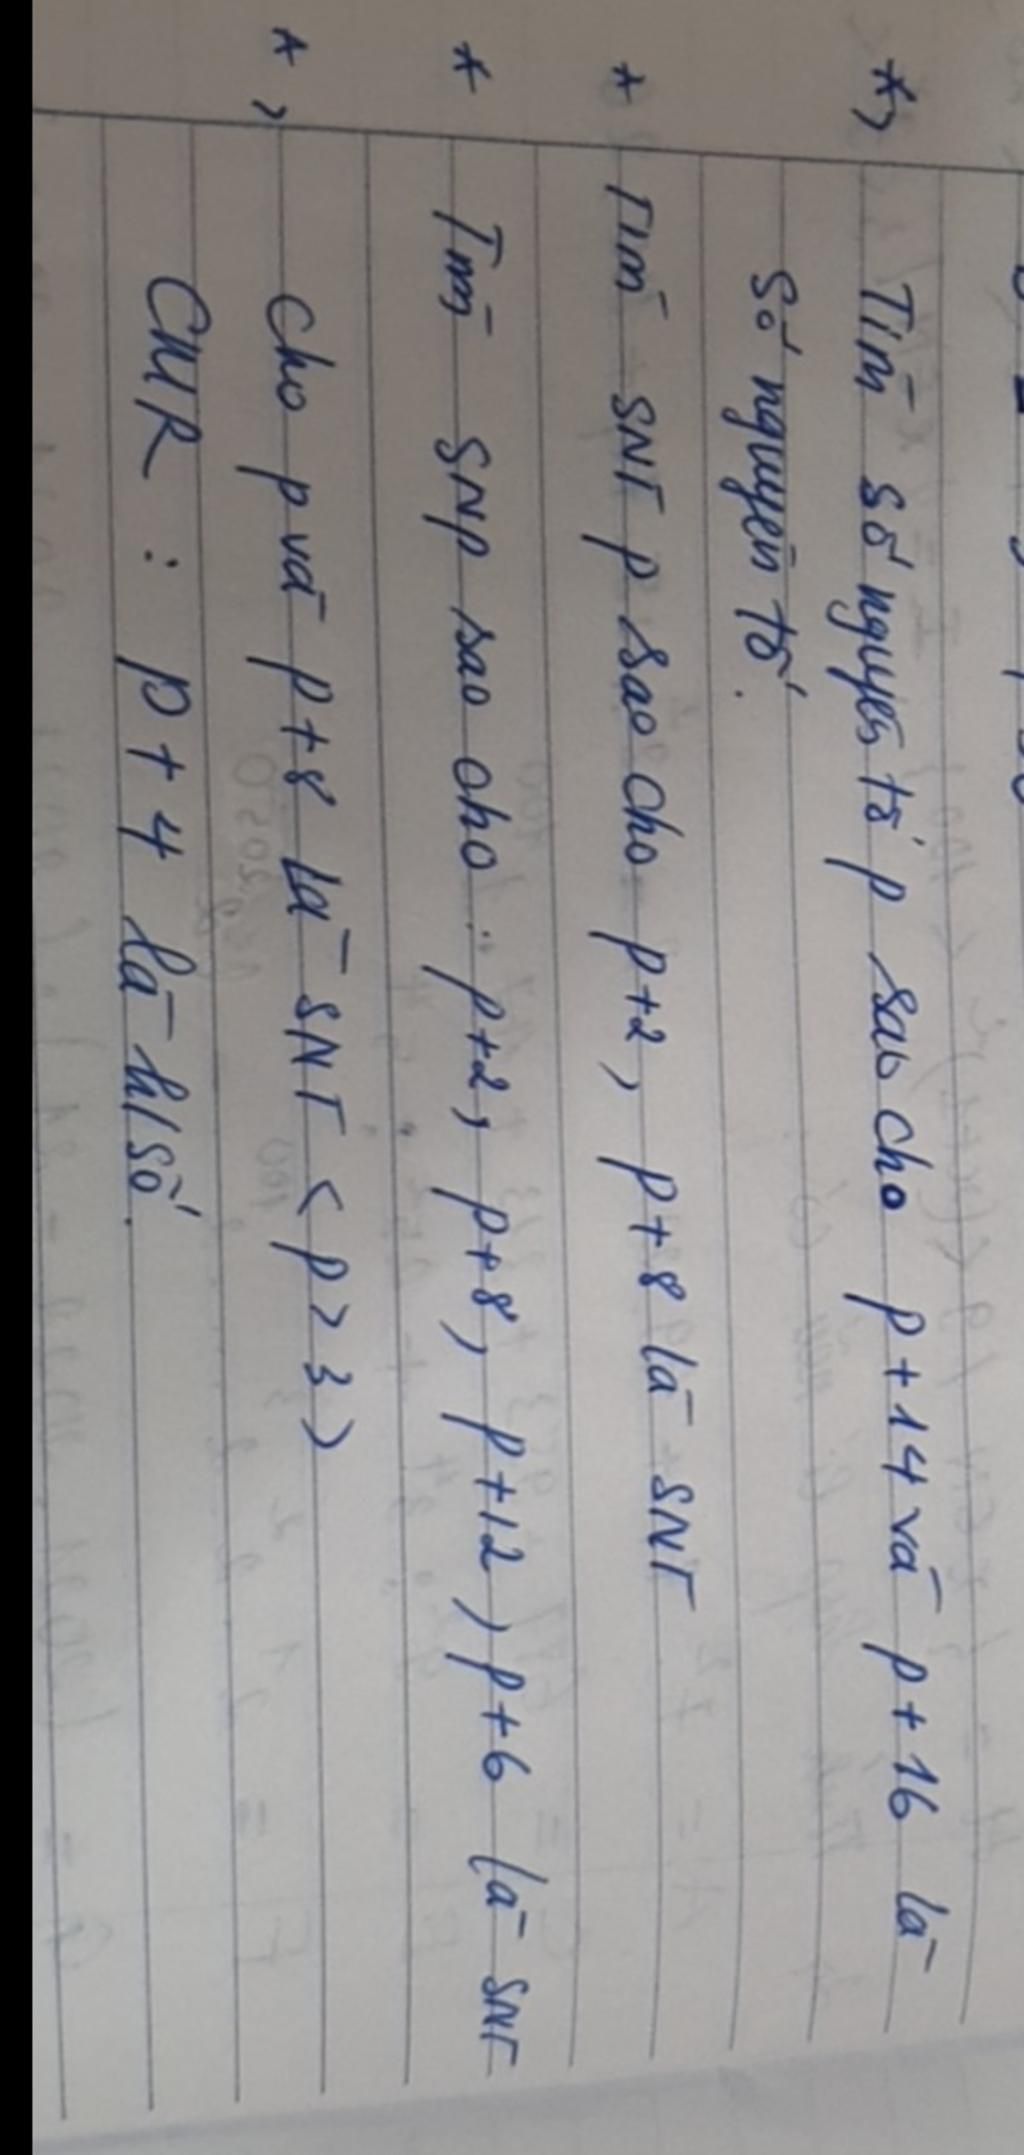 *) Tìm số nguyên tố p sao cho p+14 và p+16 là
số nguyên tố.
* Tìm SNT p sao cho p+2, p+8 là SNT
* Tìm SNP sao cho : p+2, p+8, p+12, p+6 là SNT
*) Cho p và p+8 là SNT < p > 3)
CMR : p + 4 là h/số.